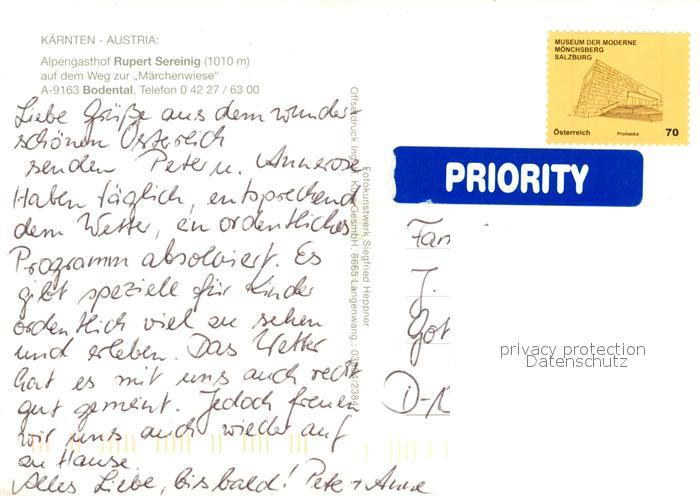 KÄRNTEN - AUSTRIA:
Alpengasthof Rupert Sereinig (1010 m)
auf dem Weg zur „Märchenwiese"
A-9163 Bodental, Telefon 0 42 27 / 63 00
Liebe Grüße aus dem wunder-
schönen Österreich
senden Peter u. Annerose
Haben täglich, entsprechend
dem Wetter, ein ordentliches
Programm absolviert. Es
gibt spezielle für Kinder
ordentlich viel zu sehen
und erleben. Das Wetter
hat es mit uns auch recht
gut gemeint. Jedoch freuen
wir uns auch wieder auf
zu Hause.
Alles Liebe, bis bald! Peter + Anne
Fotokunstwerk Siegfried Heppner
Offsetdruck Ing. Ges.m.b.H. 8665 Langenwang
MUSEUM DER MODERNE
MÖNCHSBERG
SALZBURG
Österreich Prohaska 70
PRIORITY
Fam
J.
Got
D-
privacy protection
Datenschutz